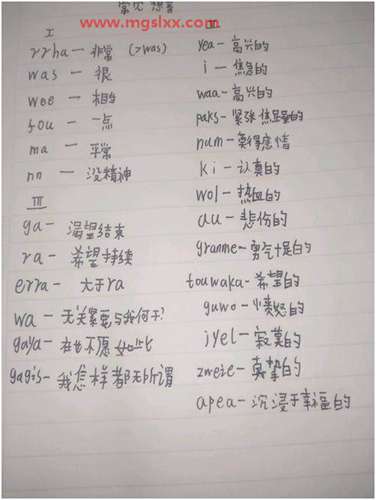 常见 想音
www.mgslxx.com
I
rrha — 非常 (>was)
was — 很
wee — 相当
fou — 一点
ma — 平常
nn — 没精神
III
ga — 渴望结束
ra — 希望持续
erra — 大于ra
wa — 无关紧要与我何干?
gaya — 在也不愿如此
gagis — 我怎样都无所谓
II
yea — 高兴的
i — 焦急的
waa — 高兴的
paks — 紧张 焦虑的
num — 莫得感情
ki — 认真的
wol — 热血的
au — 悲伤的
granme — 勇气十足的
touwaka — 希望的
guwo — 愤怒的
iyel — 寂寞的
zweie — 真挚的
apea — 沉浸于幸福的